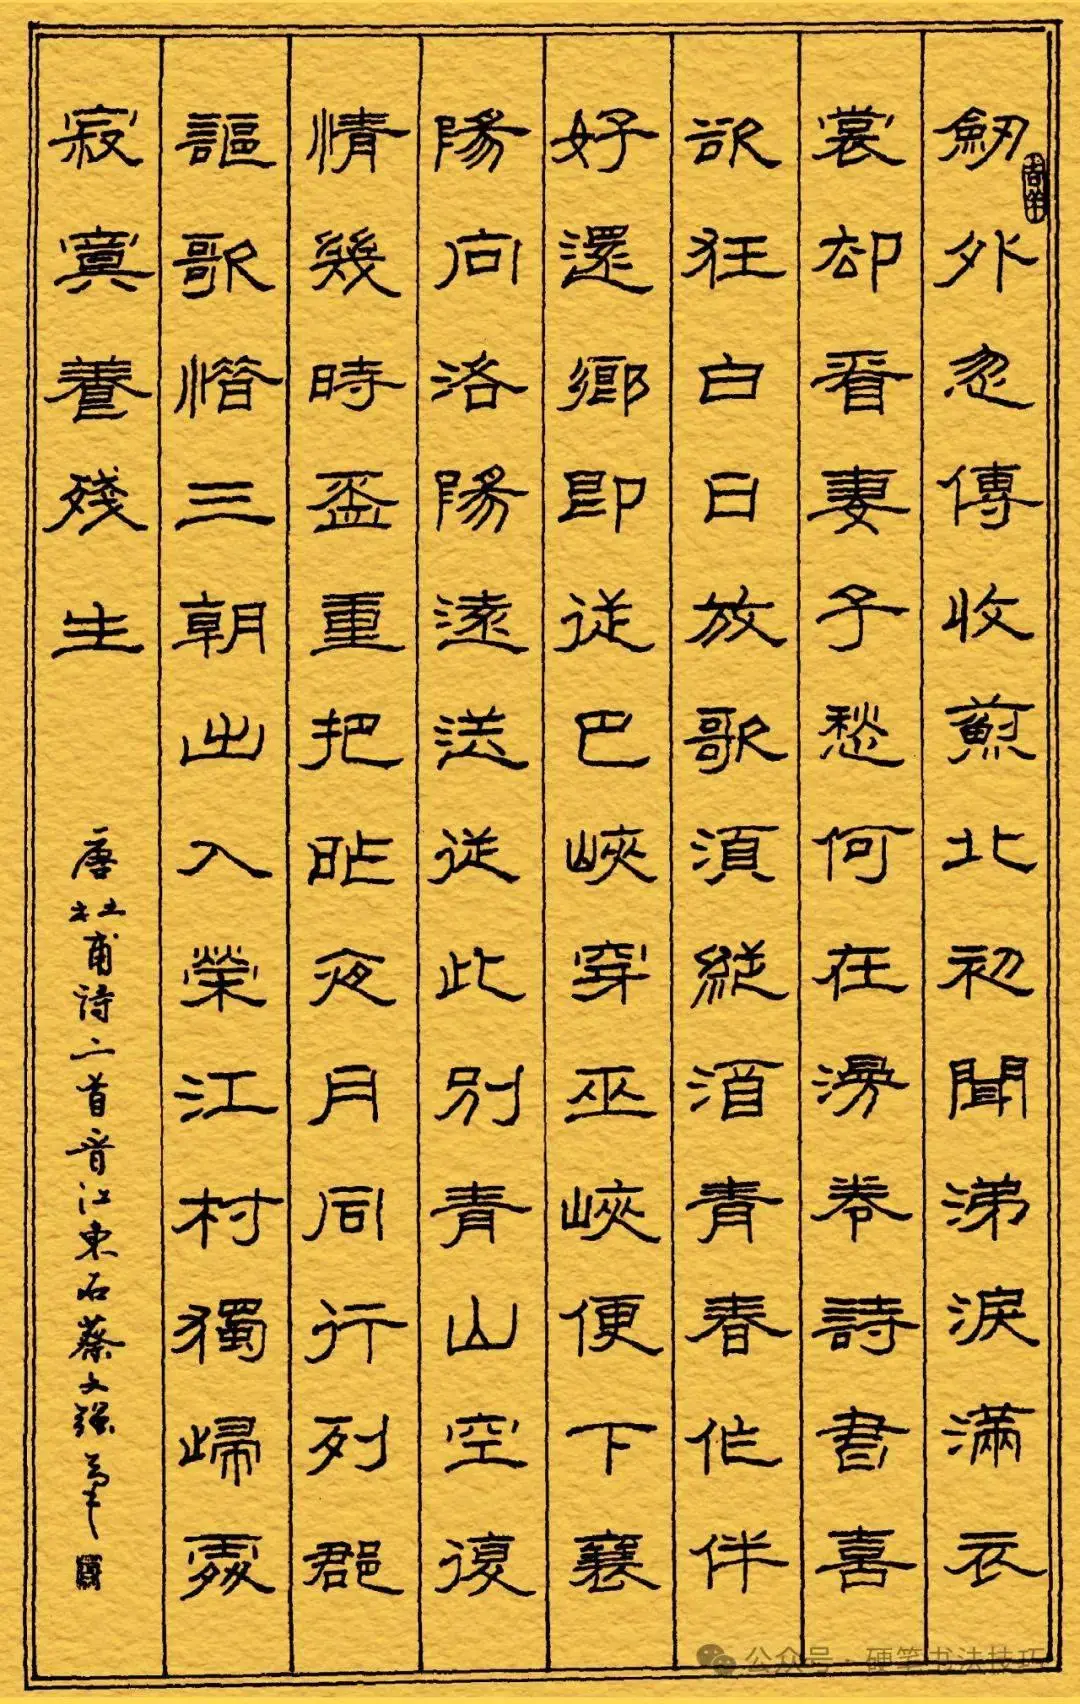 劒外忽傳收薊北初聞涕淚滿衣
裳却看妻子愁何在漫卷詩書喜
欲狂白日放歌須縱酒青春作伴
好還鄉即從巴峽穿巫峽便下襄
陽向洛陽遠送從此別青山空復
情幾時盃重把昨夜月同行列郡
謳歌惜三朝出入榮江村獨歸處
寂寞養殘生
唐杜甫诗二首晋江東石蔡文強
公众号·硬笔书法技巧